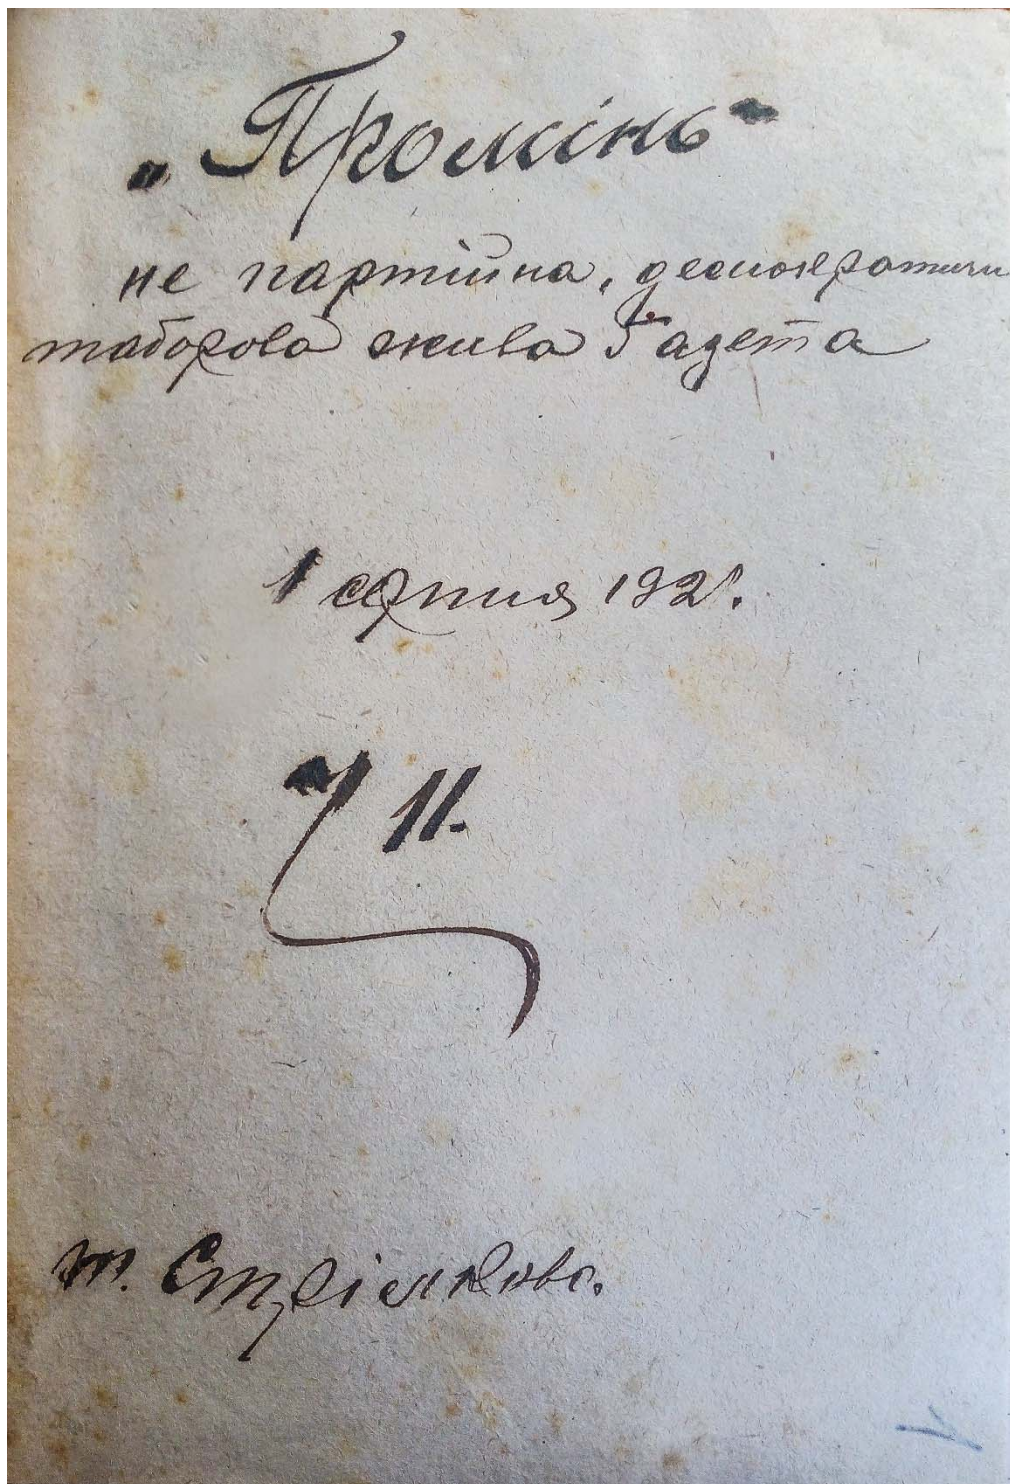 „Промінь"
не партійна, демократични
таборова жива Ґазета
1 серпня 1921.
Ч 11.
т. Стрілково.